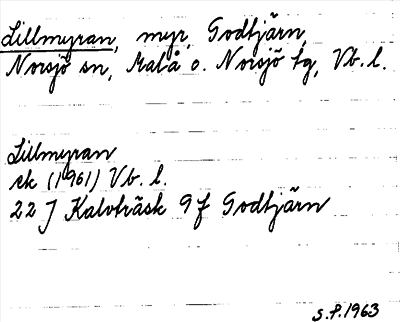 Lillmyran, myr, Godtjärn,
Norsjö sn, Malå o. Norsjö tg, Vb. l.
Lillmyran
ek (1961) Vb. l.
22 J Kalvträsk 9 f Godtjärn
S.P. 1963